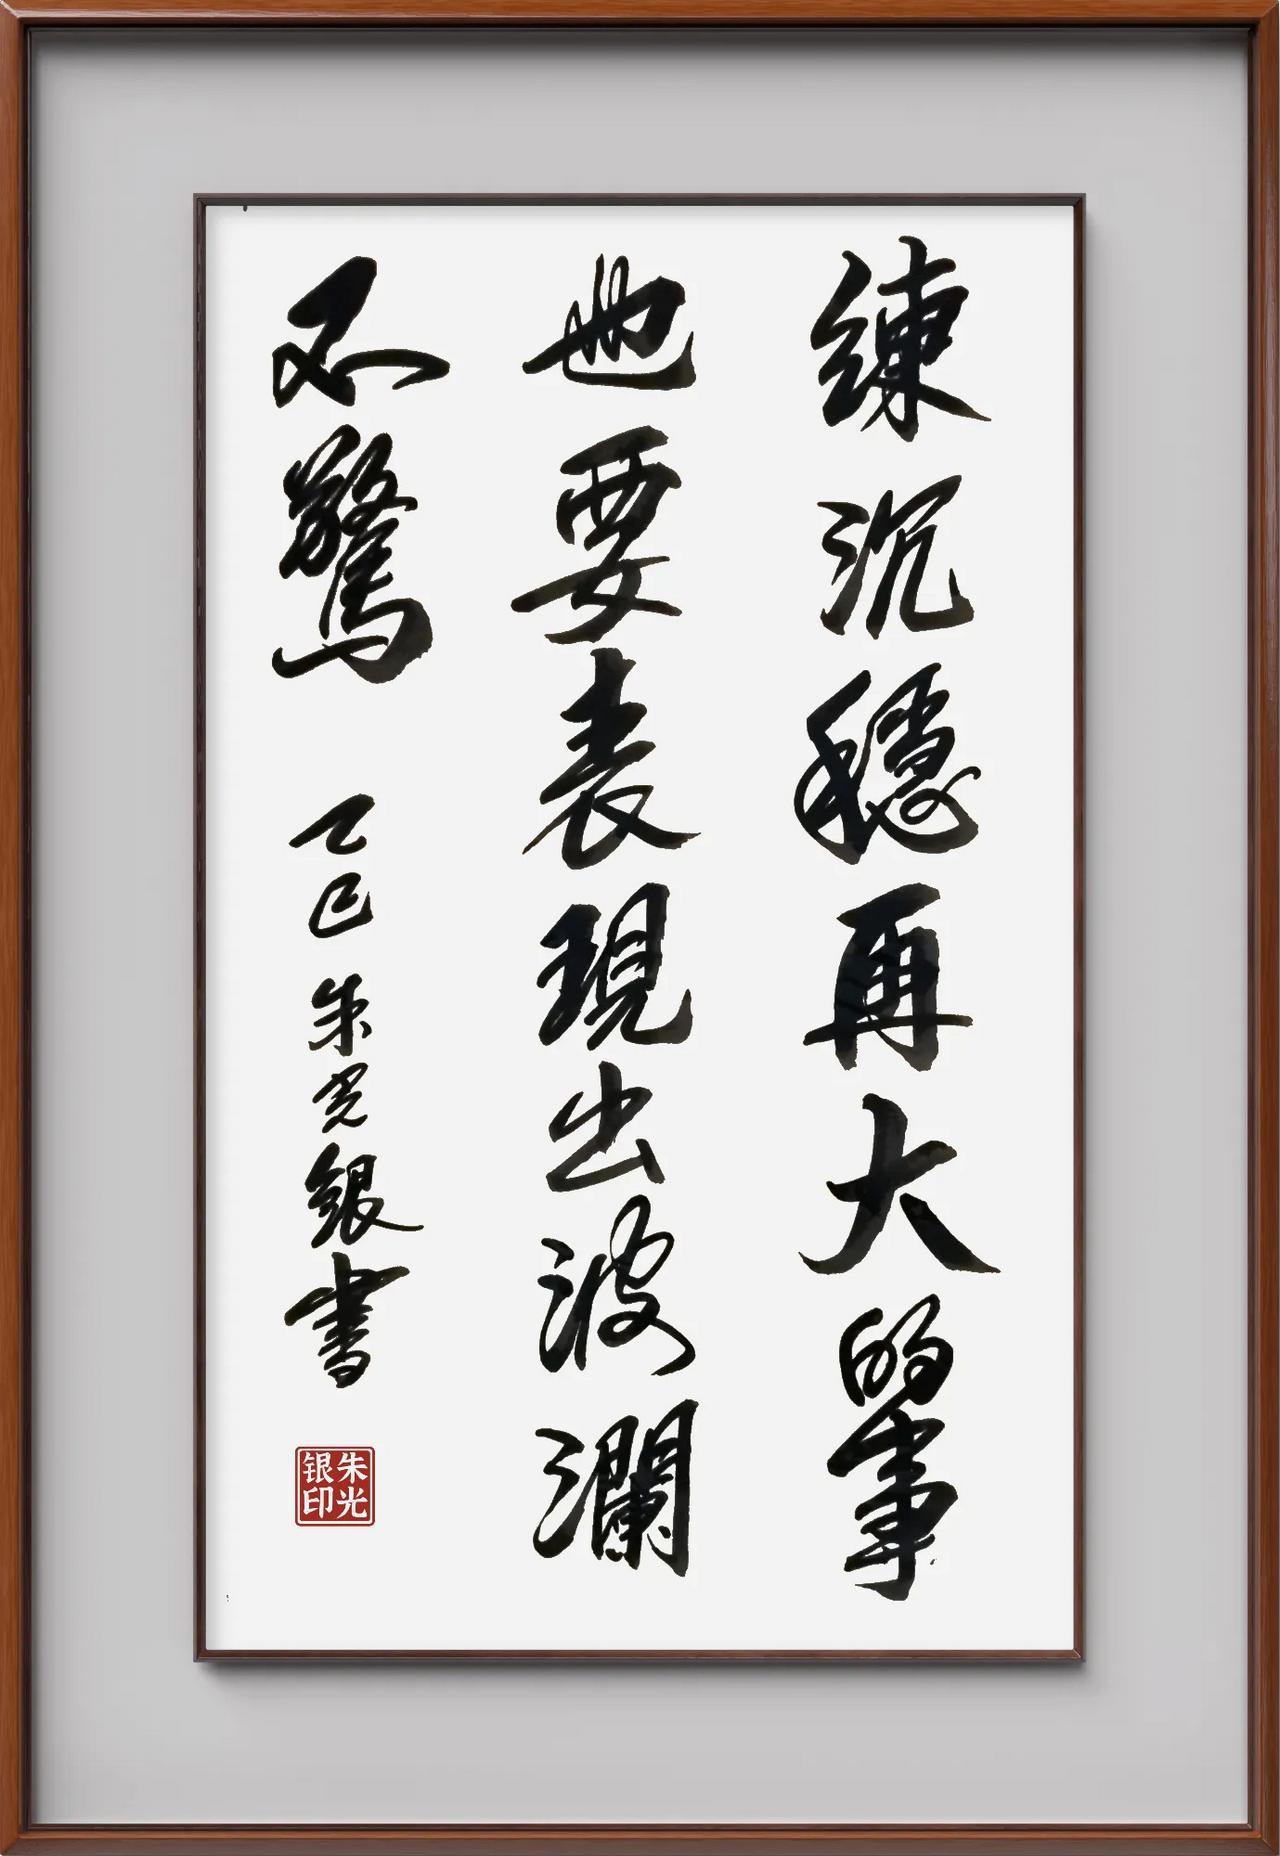 練沉穩再大的事
也要表現出波瀾
不驚
乙巳朱光銀書
朱光银印